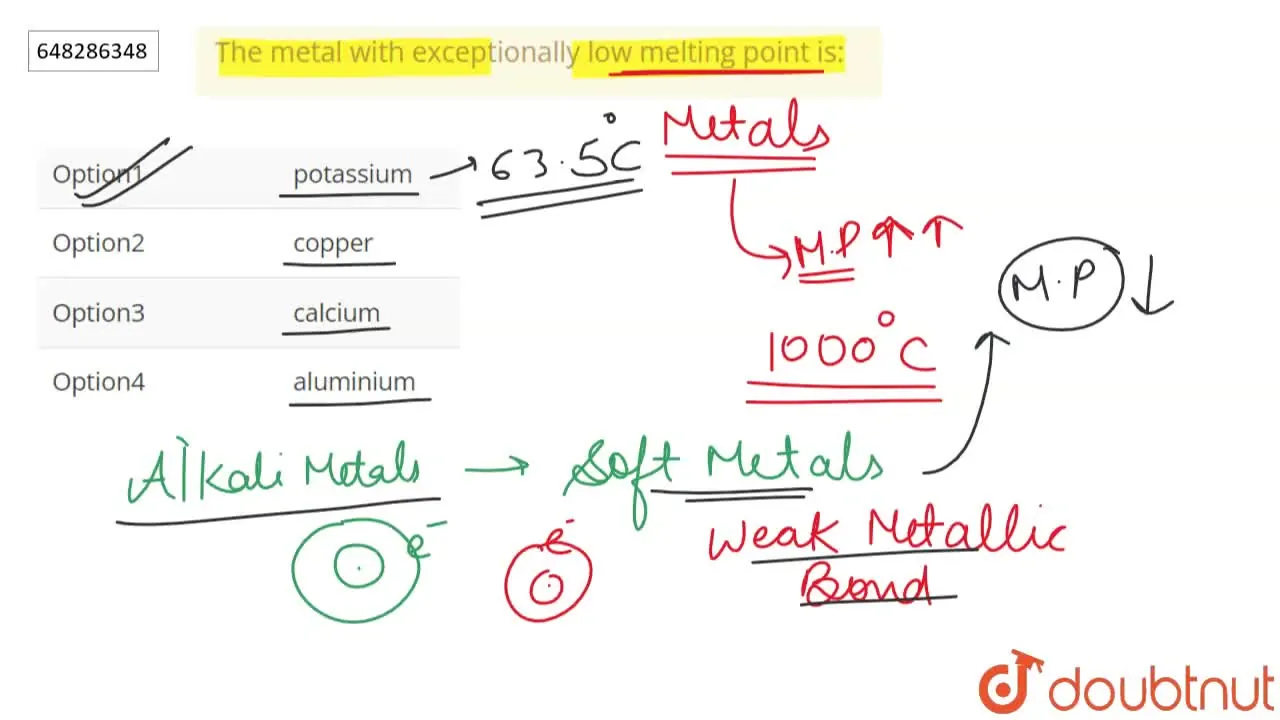 648286348
The metal with exceptionally low melting point is:
Metals
Option1 potassium → 63.5°C
M.P ↑ ↑
Option2 copper
M.P ↓
Option3 calcium
1000°C
Option4 aluminium
Alkali Metals → Soft Metals
e⁻ e⁻ Weak Metallic
Bond
doubtnut